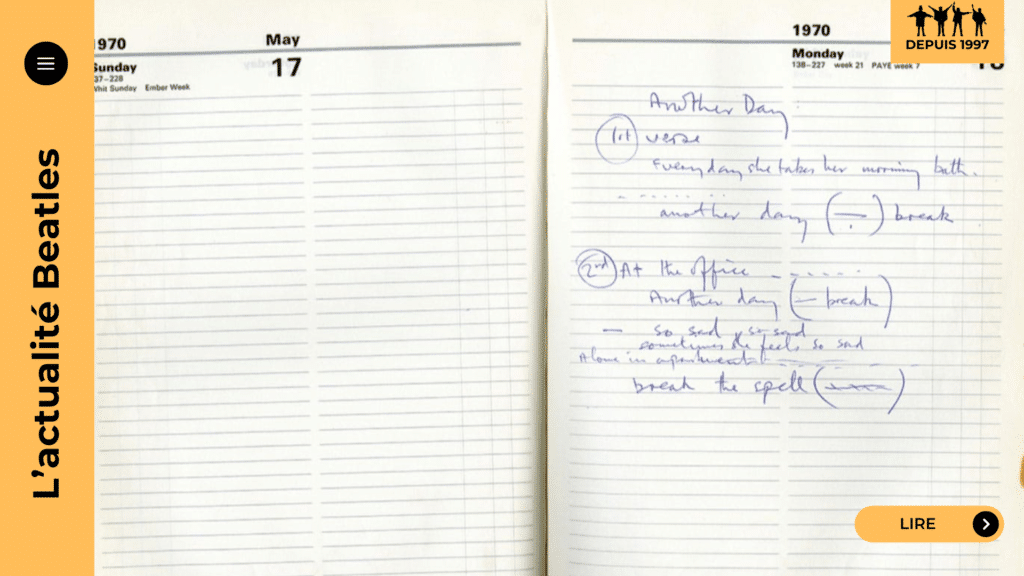 L'actualité Beatles
1970 May
Sunday 17
37-228
Whit Sunday Ember Week
1970
Monday 18
138-227 week 21 PAYE week 7
DEPUIS 1997
Another Day
1st verse
Every day she takes her morning bath.
another day (÷) break
2nd At the office
Another day (— break)
— so sad, so sad
sometimes she feels so sad
Alone in apartment
break the spell
LIRE